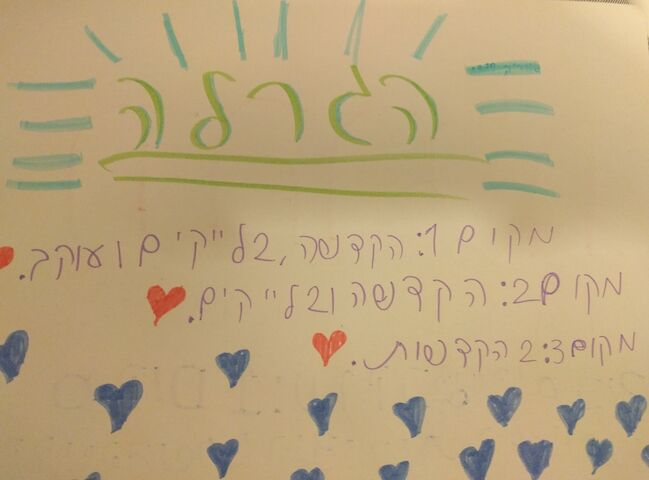 הגרלה
מקום 1: הקדשה, 2 לייקים ועוקב.
מקום 2: הקדשה ו2 לייקים.
מקום 3: 2 הקדשות.